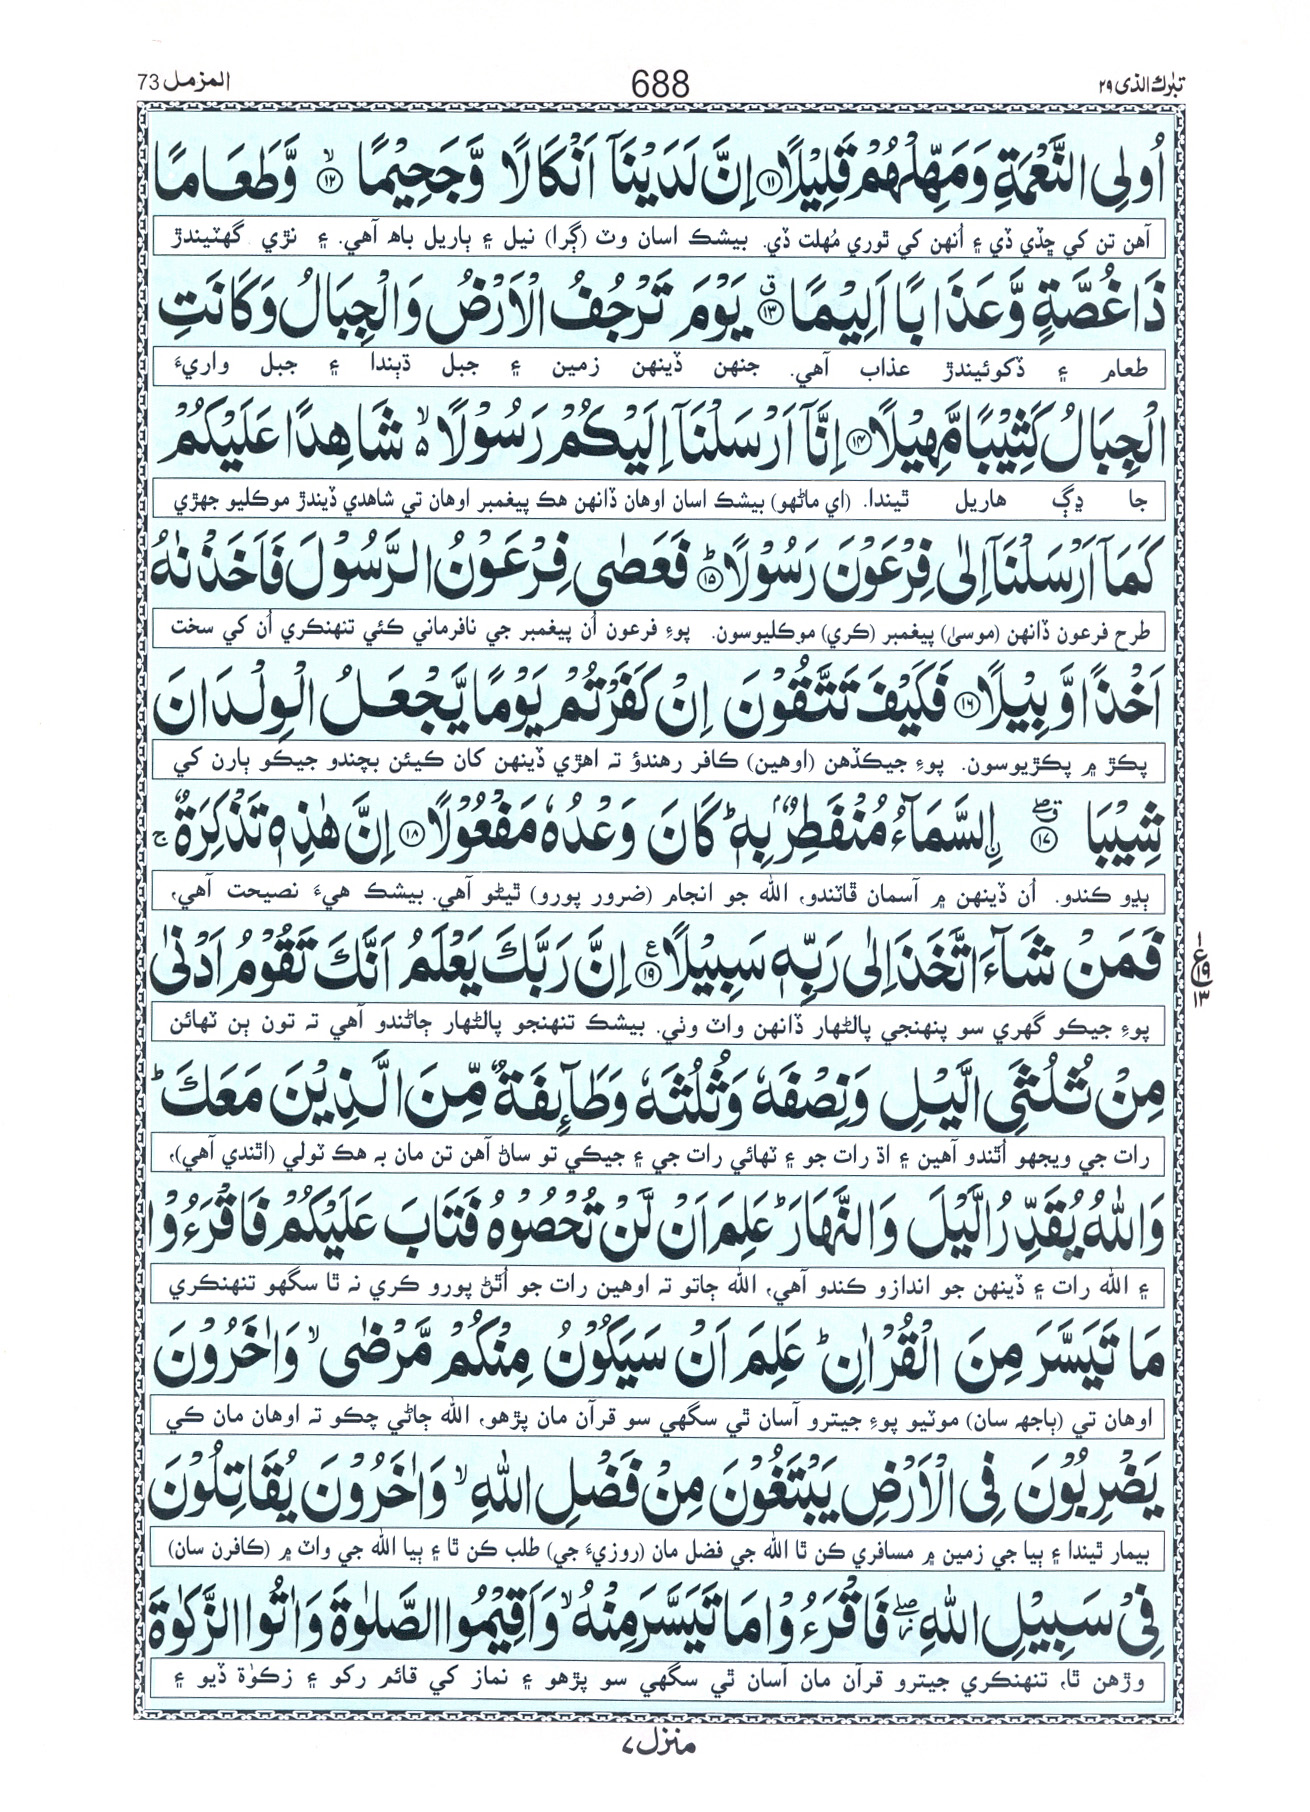 تبٰرك الذى ٢٩
688
المزمل 73
اُولِى النَّعْمَةِ وَمَهِّلْهُمْ قَلِيْلًا ١١ اِنَّ لَدَيْنَآ اَنْكَالًا وَّجَحِيْمًا ۙ ١٢ وَّطَعَامًا
آهن تن کي ڇڏي ڏي ۽ اُنهن کي ٿوري مُهلت ڏي. بيشڪ اسان وٽ (ڳرا) نيل ۽ ٻاريل باھ آهي. ۽ نڙي گهٽيندڙ
ذَا غُصَّةٍ وَّعَذَابًا اَلِيْمًا ق ١٣ يَوْمَ تَرْجُفُ الْاَرْضُ وَالْجِبَالُ وَكَانَتِ
طعام ۽ ڏکوئيندڙ عذاب آهي. جنهن ڏينهن زمين ۽ جبل ڌٻندا ۽ جبل واريءَ
الْجِبَالُ كَثِيْبًا مَّهِيْلًا ١٤ اِنَّآ اَرْسَلْنَآ اِلَيْكُمْ رَسُوْلًا ۙ٥ شَاهِدًا عَلَيْكُمْ
جا ڍڳ هاريل ٿيندا. (اي ماڻهو) بيشڪ اسان اوهان ڏانهن هڪ پيغمبر اوهان تي شاهدي ڏيندڙ موڪليو جهڙي
كَمَآ اَرْسَلْنَآ اِلٰى فِرْعَوْنَ رَسُوْلًا ؕ ١٥ فَعَصٰى فِرْعَوْنُ الرَّسُوْلَ فَاَخَذْنٰهُ
طرح فرعون ڏانهن (موسىٰ) پيغمبر (ڪري) موڪليوسون. پوءِ فرعون اُن پيغمبر جي نافرماني ڪئي تنهنڪري اُن کي سخت
اَخْذًا وَّبِيْلًا ١٦ فَكَيْفَ تَتَّقُوْنَ اِنْ كَفَرْتُمْ يَوْمًا يَّجْعَلُ الْوِلْدَانَ
پڪڙ ۾ پڪڙيوسون. پوءِ جيڪڏهن (اوهين) ڪافر رهندؤ تہ اهڙي ڏينهن کان ڪيئن بچندو جيڪو ٻارن کي
شِيْبَا ۖق ١٧ اِلسَّمَآءُ مُنْفَطِرٌۢ بِهٖ ؕ كَانَ وَعْدُهٗ مَفْعُوْلًا ١٨ اِنَّ هٰذِهٖ تَذْكِرَةٌ ۚ
ٻڍو ڪندو. اُن ڏينهن ۾ آسمان ڦاٽندو، الله جو انجام (ضرور پورو) ٿيڻو آهي. بيشڪ هيءَ نصيحت آهي،
فَمَنْ شَآءَ اتَّخَذَ اِلٰى رَبِّهٖ سَبِيْلًا ع ١٩ اِنَّ رَبَّكَ يَعْلَمُ اَنَّكَ تَقُوْمُ اَدْنٰى
ع ١ ١٩ ١٣
پوءِ جيڪو گهري سو پنهنجي پالڻهار ڏانهن واٽ وٺي. بيشڪ تنهنجو پالڻهار ڄاڻندو آهي تہ تون ٻن ٽهائن
مِنْ ثُلُثَىِ الَّيْلِ وَنِصْفَهٗ وَثُلُثَهٗ وَطَآئِفَةٌ مِّنَ الَّذِيْنَ مَعَكَ ؕ
رات جي ويجهو اُٿندو آهين ۽ اڌ رات جو ۽ ٽهائي رات جي ۽ جيڪي تو ساڻ آهن تن مان بہ هڪ ٽولي (اٿندي آهي)،
وَاللّٰهُ يُقَدِّرُ الَّيْلَ وَالنَّهَارَ ؕ عَلِمَ اَنْ لَّنْ تُحْصُوْهُ فَتَابَ عَلَيْكُمْ فَاقْرَءُوْا
۽ الله رات ۽ ڏينهن جو اندازو ڪندو آهي، الله ڄاتو تہ اوهين رات جو اُٿڻ پورو ڪري نہ ٿا سگهو تنهنڪري
مَا تَيَسَّرَ مِنَ الْقُرْاٰنِ ؕ عَلِمَ اَنْ سَيَكُوْنُ مِنْكُمْ مَّرْضٰى ۙ وَاٰخَرُوْنَ
اوهان تي (ٻاجهہ سان) موٽيو پوءِ جيترو آسان ٿي سگهي سو قرآن مان پڙهو، الله ڄاڻي چڪو تہ اوهان مان کي
يَضْرِبُوْنَ فِى الْاَرْضِ يَبْتَغُوْنَ مِنْ فَضْلِ اللّٰهِ ۙ وَاٰخَرُوْنَ يُقَاتِلُوْنَ
بيمار ٿيندا ۽ ٻيا جي زمين ۾ مسافري ڪن ٿا الله جي فضل مان (روزيءَ جي) طلب ڪن ٿا ۽ ٻيا الله جي واٽ ۾ (ڪافرن سان)
فِىْ سَبِيْلِ اللّٰهِ ۖز فَاقْرَءُوْا مَا تَيَسَّرَ مِنْهُ ۙ وَاَقِيْمُوا الصَّلٰوةَ وَاٰتُوا الزَّكٰوةَ
وڙهن ٿا، تنهنڪري جيترو قرآن مان آسان ٿي سگهي سو پڙهو ۽ نماز کي قائم رکو ۽ زڪوٰة ڏيو ۽
منزل ٧